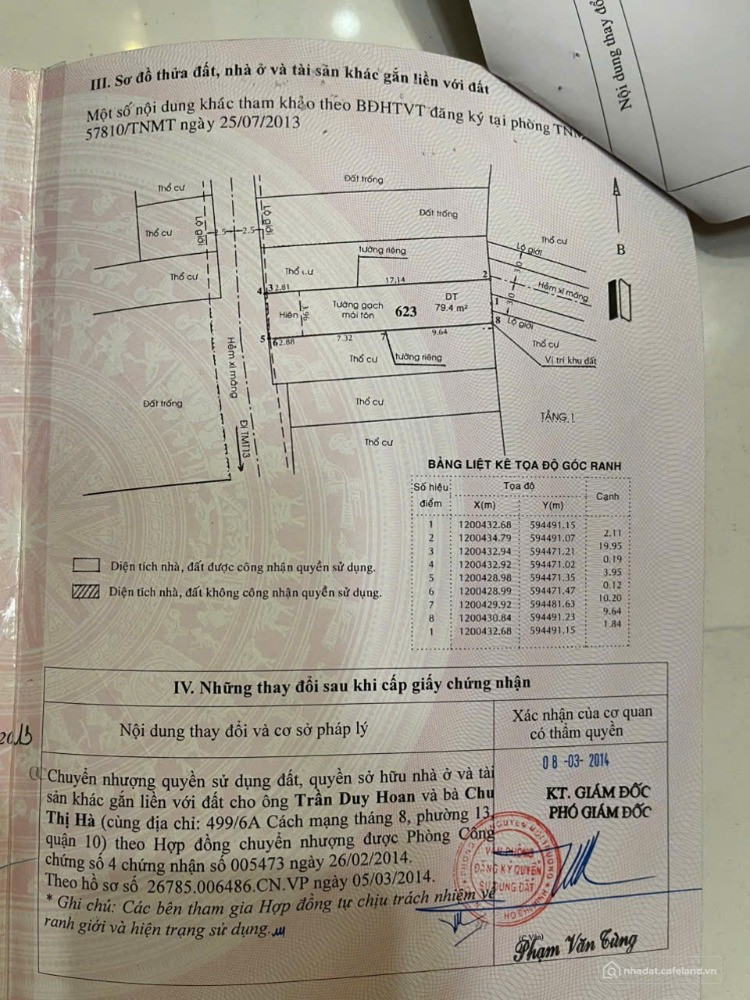 Nội dung thay đổ
III. Sơ đồ thửa đất, nhà ở và tài sản khác gắn liền với đất
Một số nội dung khác tham khảo theo BĐHTVT đăng ký tại phòng TNM
57810/TNMT ngày 25/07/2013
Thổ cư
Thổ cư
Thổ cư
Lộ giới
2.5
2.5
Lộ giới
Đất trống
Đất trống
Thổ cư
tường riêng
17.14
2
4
3
2.81
Hiên
3.96
Tường gạch
mái tôn
623
DT
79.4 m²
5
6
2.88
7.32
7
9.64
1
8
Thổ cư
tường riêng
Lộ giới
Thổ cư
3.0
Hẻm xi măng
3.0
Lộ giới
Thổ cư
Vị trí khu đất
B
Hẻm xi măng
Đi TMT13
Đất trống
Thổ cư
Thổ cư
TẦNG 1
BẢNG LIỆT KÊ TỌA ĐỘ GÓC RANH
Số hiệu điểm Tọa độ Cạnh
X(m) Y(m)
1 1200432.68 594491.15
2.11
2 1200434.79 594491.07
19.95
3 1200432.94 594471.21
0.19
4 1200432.92 594471.02
3.95
5 1200428.98 594471.35
0.12
6 1200428.99 594471.47
10.20
7 1200429.92 594481.63
9.64
8 1200430.84 594491.23
1.84
1 1200432.68 594491.15
Diện tích nhà, đất được công nhận quyền sử dụng.
Diện tích nhà, đất không công nhận quyền sử dụng.
IV. Những thay đổi sau khi cấp giấy chứng nhận
Nội dung thay đổi và cơ sở pháp lý
Xác nhận của cơ quan
có thẩm quyền
2013
Chuyển nhượng quyền sử dụng đất, quyền sở hữu nhà ở và tài
sản khác gắn liền với đất cho ông Trần Duy Hoan và bà Chu
Thị Hà (cùng địa chỉ: 499/6A Cách mạng tháng 8, phường 13,
quận 10) theo Hợp đồng chuyển nhượng được Phòng Công
chứng số 4 chứng nhận số 005473 ngày 26/02/2014.
Theo hồ sơ số 26785.006486.CN.VP ngày 05/03/2014.
* Ghi chú: Các bên tham gia Hợp đồng tự chịu trách nhiệm về
ranh giới và hiện trạng sử dụng.
08-03-2014
KT. GIÁM ĐỐC
PHÓ GIÁM ĐỐC
VĂN PHÒNG
ĐĂNG KÝ QUYỀN
SỬ DỤNG ĐẤT
Phạm Văn Tùng
nhadat.cafeland.vn